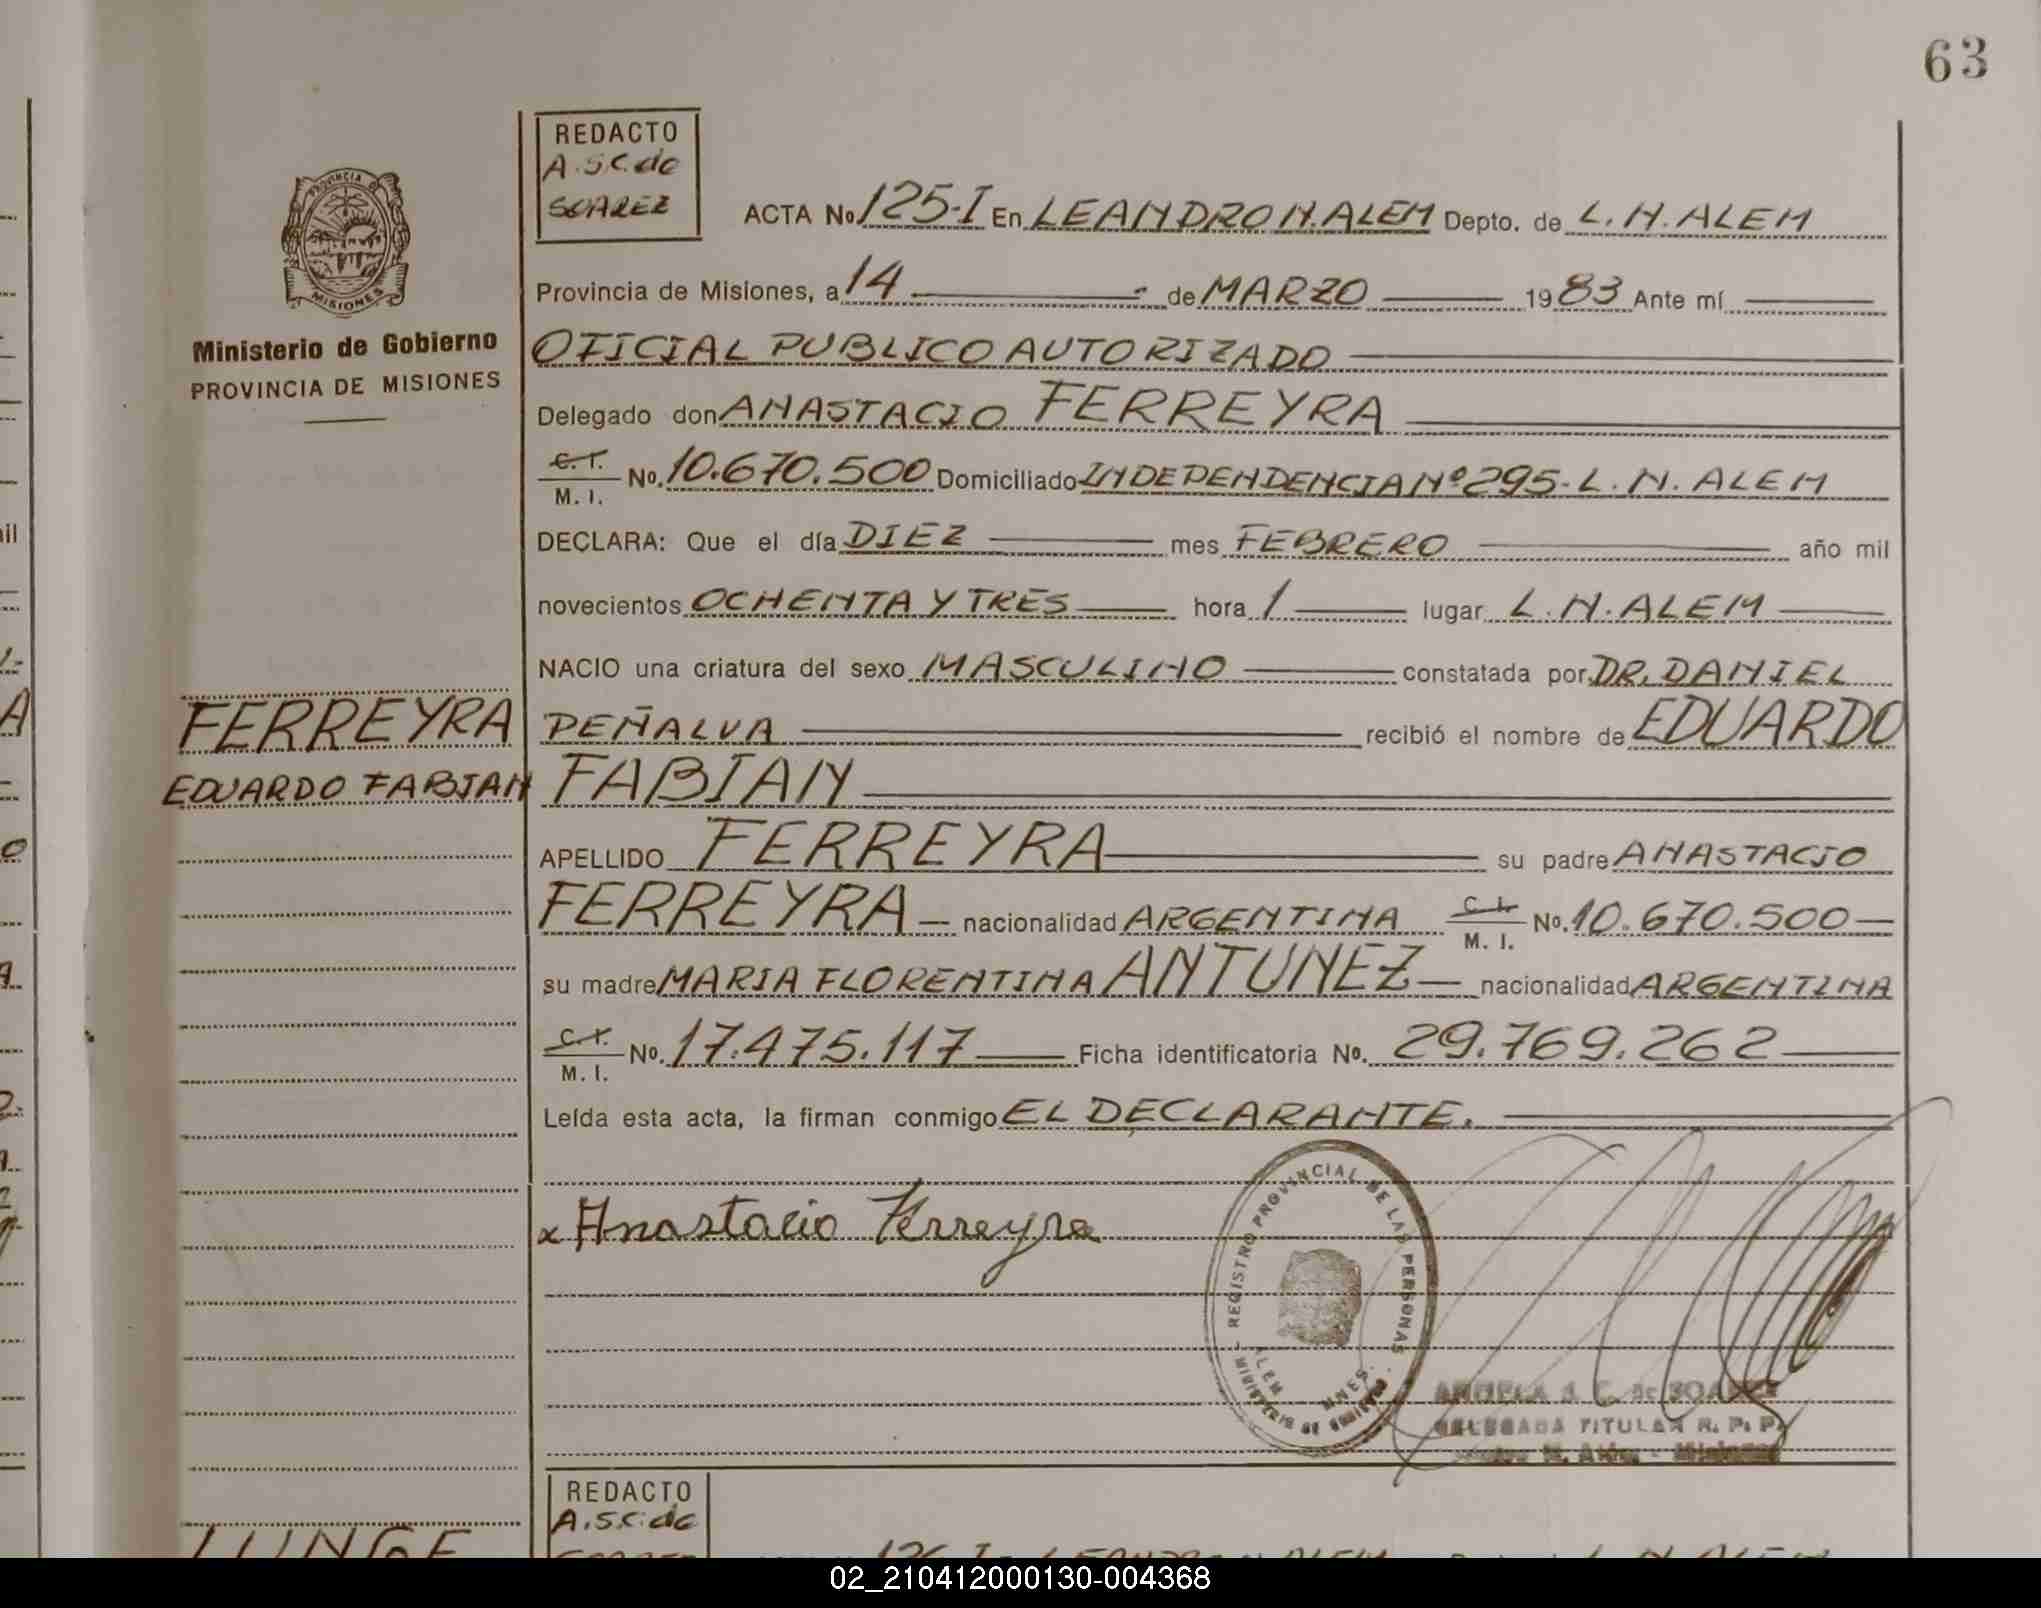 63
REDACTO
A.S.C. de
SOAREZ
PROVINCIA DE
MISIONES
Ministerio de Gobierno
PROVINCIA DE MISIONES
ACTA No. 125-I En LEANDRO N. ALEM Depto. de L. N. ALEM
Provincia de Misiones, a 14 de MARZO 1983 Ante mí
OFICIAL PUBLICO AUTORIZADO
Delegado don ANASTACIO FERREYRA
C. I.
M. I. No. 10.670.500 Domiciliado INDEPENDENCIA Nº 295- L. N. ALEM
DECLARA: Que el día DIEZ mes FEBRERO año mil
novecientos OCHENTA Y TRES hora 1 lugar L. N. ALEM
NACIO una criatura del sexo MASCULINO constatada por DR. DANIEL
PEÑALVA recibió el nombre de EDUARDO
FABIAN
FERREYRA
EDUARDO FABIAN
APELLIDO FERREYRA su padre ANASTACIO
FERREYRA nacionalidad ARGENTINA C. I. M. I. No. 10.670.500
su madre MARIA FLORENTINA ANTUNEZ nacionalidad ARGENTINA
C. I.
M. I. No. 17.475.117 Ficha identificatoria No. 29.769.262
Leída esta acta, la firman conmigo EL DECLARANTE.
x Anastacio Ferreyra
REGISTRO PROVINCIAL DE LAS PERSONAS
MINISTERIO DE GOBIERNO
ALEM MNES.
S. C. de SOAREZ
DELEGADA TITULAR R. P. P.
N. Além - Misiones
REDACTO
A.S.C. de
126-I
L. N. ALEM
02_210412000130-004368